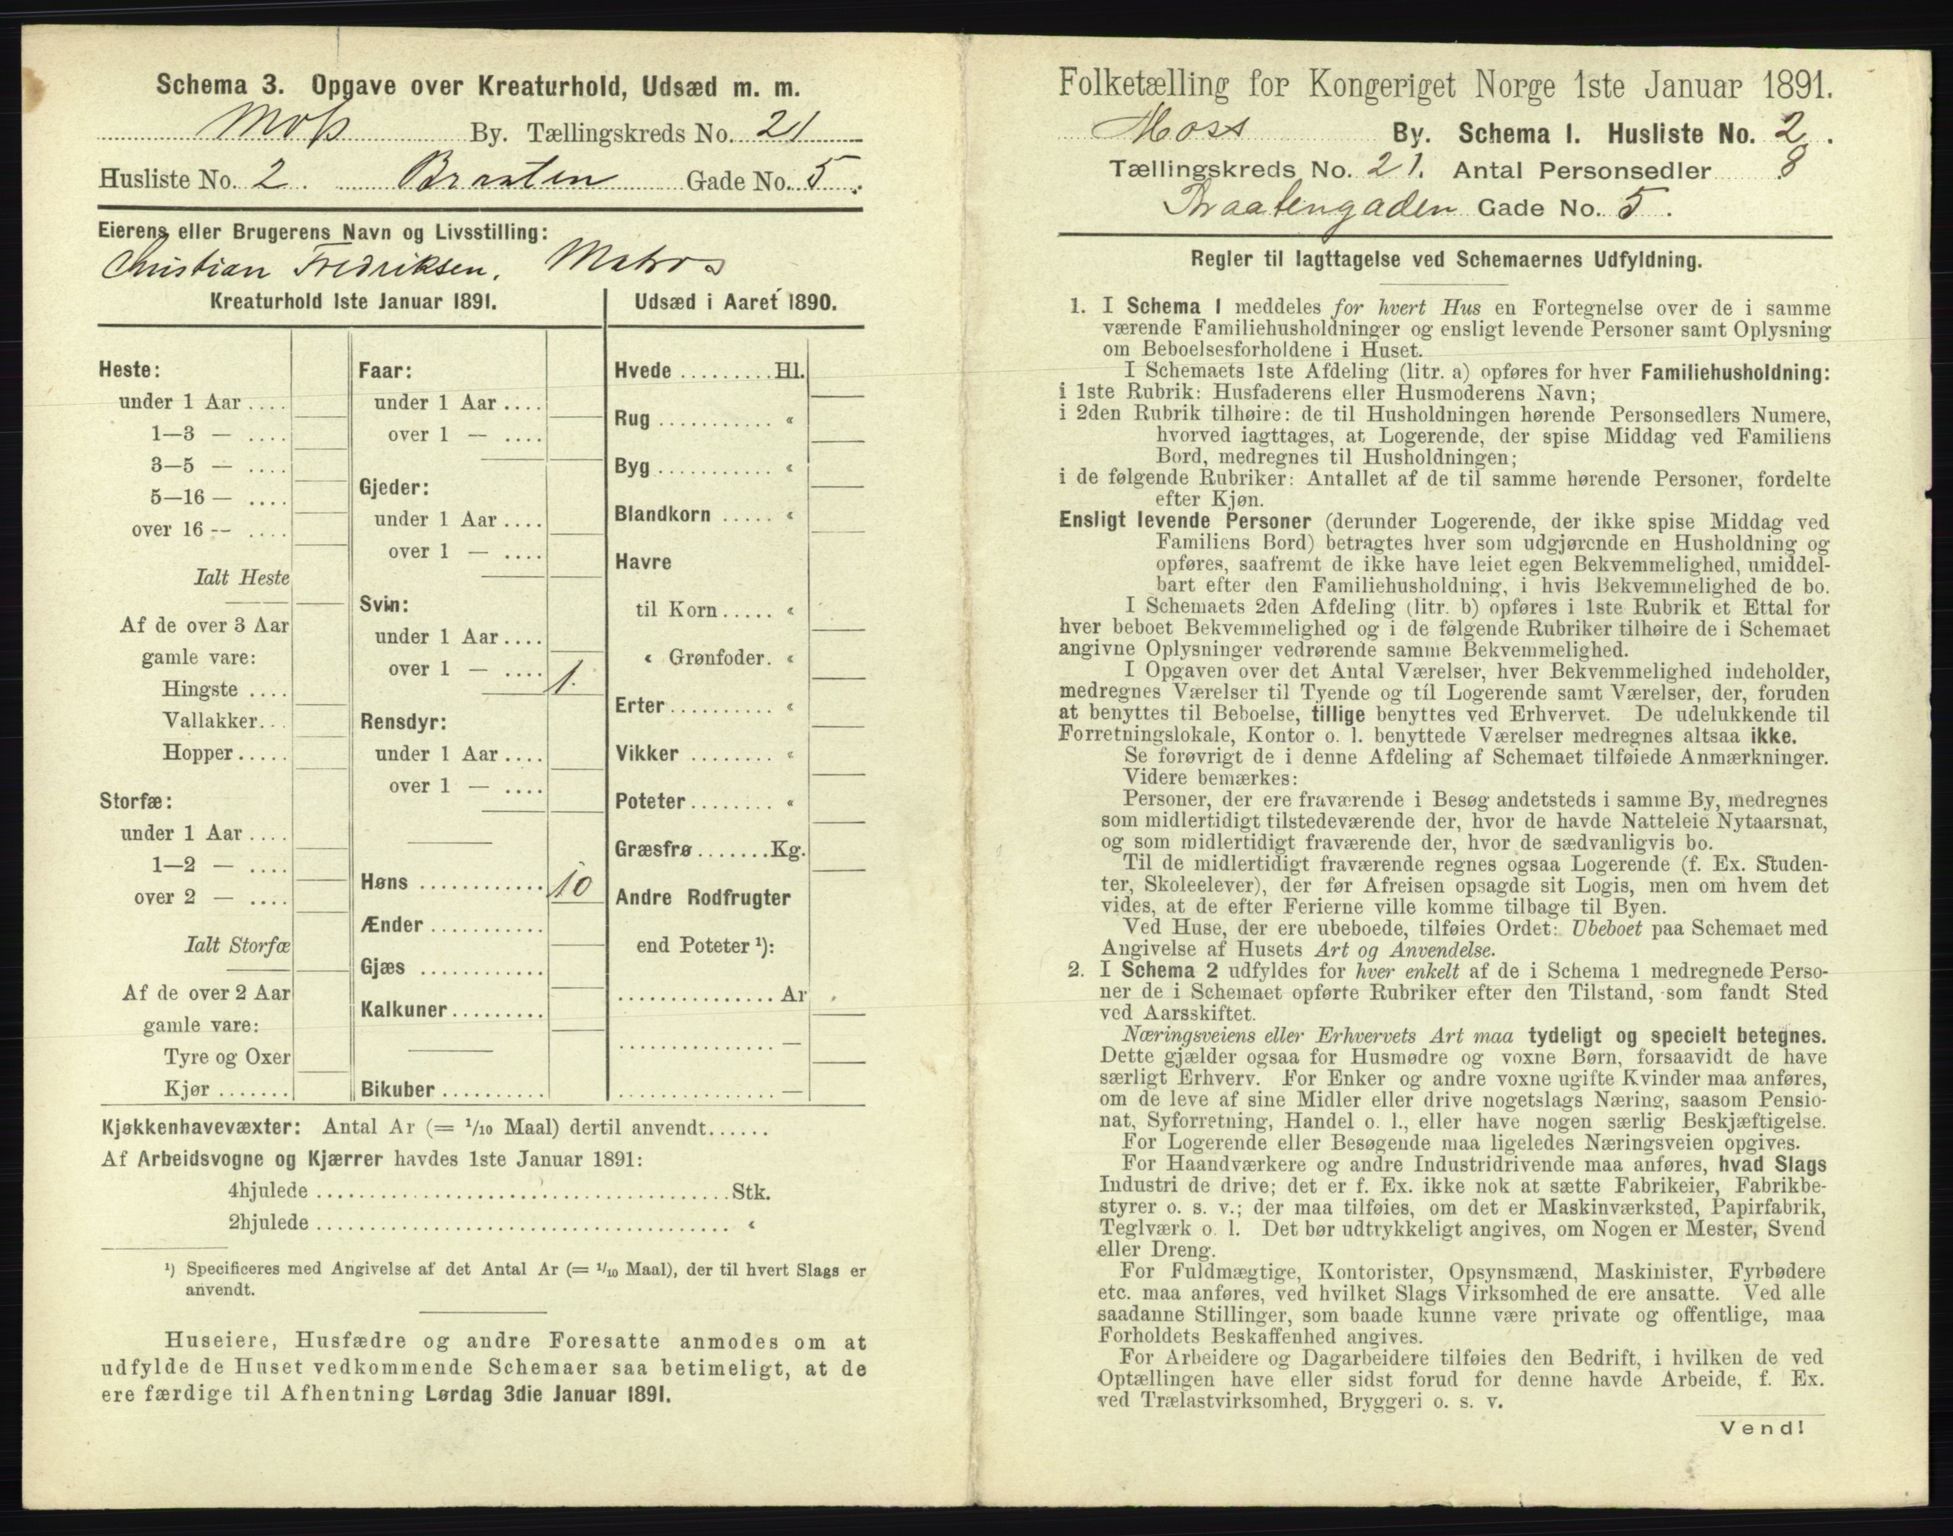 Schema 3. Opgave over Kreaturhold, Udsæd m. m.
Moss By. Tællingskreds No. 21
Husliste No. 2. Braaten Gade No. 5.
Eierens eller Brugerens Navn og Livsstilling:
Christian Fredriksen. Matros
Kreaturhold 1ste Januar 1891.
Heste:
under 1 Aar ....
1—3 — ....
3—5 — ....
5—16 — ....
over 16 -- ....
Ialt Heste
Af de over 3 Aar
gamle vare:
Hingste ....
Vallakker...
Hopper.....
Storfæ:
under 1 Aar ....
1—2 — ....
over 2 — ....
Ialt Storfæ
Af de over 2 Aar
gamle vare:
Tyre og Oxer
Kjør .......
Faar:
under 1 Aar ....
over 1 — ....
Gjeder:
under 1 Aar ....
over 1 — ....
Svin:
under 1 Aar ....
over 1 — .... 1.
Rensdyr:
under 1 Aar ....
over 1 — ....
Høns ............ 10
Ænder ...........
Gjæs ............
Kalkuner.........
Bikuber ..........
Udsæd i Aaret 1890.
Hvede .........Hl.
Rug ........... «
Byg ........... «
Blandkorn ..... «
Havre
til Korn ..... «
« Grønfoder. «
Erter.......... «
Vikker ........ «
Poteter........ «
Græsfrø .......Kg.
Andre Rodfrugter
end Poteter ¹):
............... Ar
............... —
............... —
Kjøkkenhavevæxter: Antal Ar (= 1/10 Maal) dertil anvendt......
Af Arbeidsvogne og Kjærrer havdes 1ste Januar 1891:
4hjulede .......................................Stk.
2hjulede ....................................... «
¹) Specificeres med Angivelse af det Antal Ar (= 1/10 Maal), der til hvert Slags er
anvendt.
Huseiere, Husfædre og andre Foresatte anmodes om at
udfylde de Huset vedkommende Schemaer saa betimeligt, at de
ere færdige til Afhentning Lørdag 3die Januar 1891.
Folketælling for Kongeriget Norge 1ste Januar 1891.
Moss By. Schema I. Husliste No. 2.
Tællingskreds No. 21. Antal Personsedler 8
Braatengaden Gade No. 5.
Regler til Iagttagelse ved Schemaernes Udfyldning.
1. I Schema 1 meddeles for hvert Hus en Fortegnelse over de i samme
værende Familiehusholdninger og ensligt levende Personer samt Oplysning
om Beboelsesforholdene i Huset.
I Schemaets 1ste Afdeling (litr. a) opføres for hver Familiehusholdning:
i 1ste Rubrik: Husfaderens eller Husmoderens Navn;
i 2den Rubrik tilhøire: de til Husholdningen hørende Personsedlers Numere,
hvorved iagttages, at Logerende, der spise Middag ved Familiens
Bord, medregnes til Husholdningen;
i de følgende Rubriker: Antallet af de til samme hørende Personer, fordelte
efter Kjøn.
Ensligt levende Personer (derunder Logerende, der ikke spise Middag ved
Familiens Bord) betragtes hver som udgjørende en Husholdning og
opføres, saafremt de ikke have leiet egen Bekvemmelighed, umiddel-
bart efter den Familiehusholdning, i hvis Bekvemmelighed de bo.
I Schemaets 2den Afdeling (litr. b) opføres i 1ste Rubrik et Ettal for
hver beboet Bekvemmelighed og i de følgende Rubriker tilhøire de i Schemaet
angivne Oplysninger vedrørende samme Bekvemmelighed.
I Opgaven over det Antal Værelser, hver Bekvemmelighed indeholder,
medregnes Værelser til Tyende og til Logerende samt Værelser, der, foruden
at benyttes til Beboelse, tillige benyttes ved Erhvervet. De udelukkende til
Forretningslokale, Kontor o. l. benyttede Værelser medregnes altsaa ikke.
Se forøvrigt de i denne Afdeling af Schemaet tilføiede Anmærkninger.
Videre bemærkes:
Personer, der ere fraværende i Besøg andetsteds i samme By, medregnes
som midlertidigt tilstedeværende der, hvor de havde Natteleie Nytaarsnat,
og som midlertidigt fraværende der, hvor de sædvanligvis bo.
Til de midlertidigt fraværende regnes ogsaa Logerende (f. Ex. Studen-
ter, Skoleelever), der før Afreisen opsagde sit Logis, men om hvem det
vides, at de efter Ferierne ville komme tilbage til Byen.
Ved Huse, der ere ubeboede, tilføies Ordet: Ubeboet paa Schemaet med
Angivelse af Husets Art og Anvendelse.
2. I Schema 2 udfyldes for hver enkelt af de i Schema 1 medregnede Perso-
ner de i Schemaet opførte Rubriker efter den Tilstand, som fandt Sted
ved Aarsskiftet.
Næringsveiens eller Erhvervets Art maa tydeligt og specielt betegnes.
Dette gjælder ogsaa for Husmødre og voxne Børn, forsaavidt de have
særligt Erhverv. For Enker og andre voxne ugifte Kvinder maa anføres,
om de leve af sine Midler eller drive nogetslags Næring, saasom Pensio-
nat, Syforretning, Handel o. l., eller have nogen særlig Beskjæftigelse.
For Logerende eller Besøgende maa ligeledes Næringsveien opgives.
For Haandværkere og andre Industridrivende maa anføres, hvad Slags
Industri de drive; det er f. Ex. ikke nok at sætte Fabrikeier, Fabrikbe-
styrer o. s. v.; der maa tilføies, om det er Maskinværksted, Papirfabrik,
Teglværk o. l. Det bør udtrykkeligt angives, om Nogen er Mester, Svend
eller Dreng.
For Fuldmægtige, Kontorister, Opsynsmænd, Maskinister, Fyrbødere
etc. maa anføres, ved hvilket Slags Virksomhed de ere ansatte. Ved alle
saadanne Stillinger, som baade kunne være private og offentlige, maa
Forholdets Beskaffenhed angives.
For Arbeidere og Dagarbeidere tilføies den Bedrift, i hvilken de ved
Optællingen have eller sidst forud for denne havde Arbeide, f. Ex.
ved Trælastvirksomhed, Bryggeri o. s. v.
Vend!